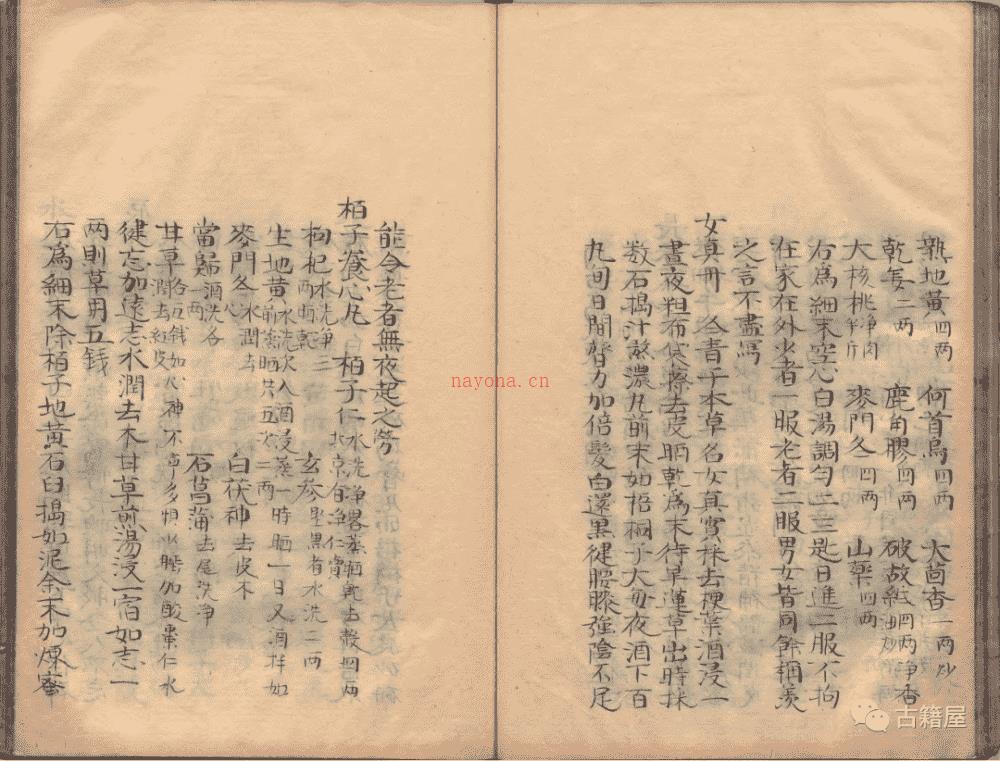 熟地黃四两 何首烏四两 大茴香一两炒
乾姜二两 鹿角膠四两 破故紙四两净香油炒
大核桃净肉半斤 麥門冬四两 山藥四两
右為細末空心白湯調匀二三匙日進二服不拘
在家在外少者一服老者二服男女皆同餘稱羡
之言不盡寫
女真丹 令青干本草名女真實採去梗葉酒浸一
晝夜粗布袋擦去皮晒乾為末待旱蓮草出時採
数石搗汁熬濃丸前末如梧桐子大每夜酒下百
九间日間膂力加倍髮白還黒健腰膝強陰不足
能令老者無夜起之勞
栢子養心丸 栢子仁水洗净畧蒸晒乾去殼四两
枸杞水洗净三两晒乾 玄參堅黒者水洗二两
生地黃水洗次入酒浸蒸一時晒一日又酒拌如前蒸晒共五次二两
麥門冬水潤去心 白茯神去皮木
當歸酒洗各一两 石菖蒲去尾洗净
甘草潤去紅皮
健忘加遠志水潤去木甘草煎湯浸一宿如志一
两則草用五钱
右為細末除栢子地黃石臼搗如泥余末加煉蜜
nayona.cn
古籍屋